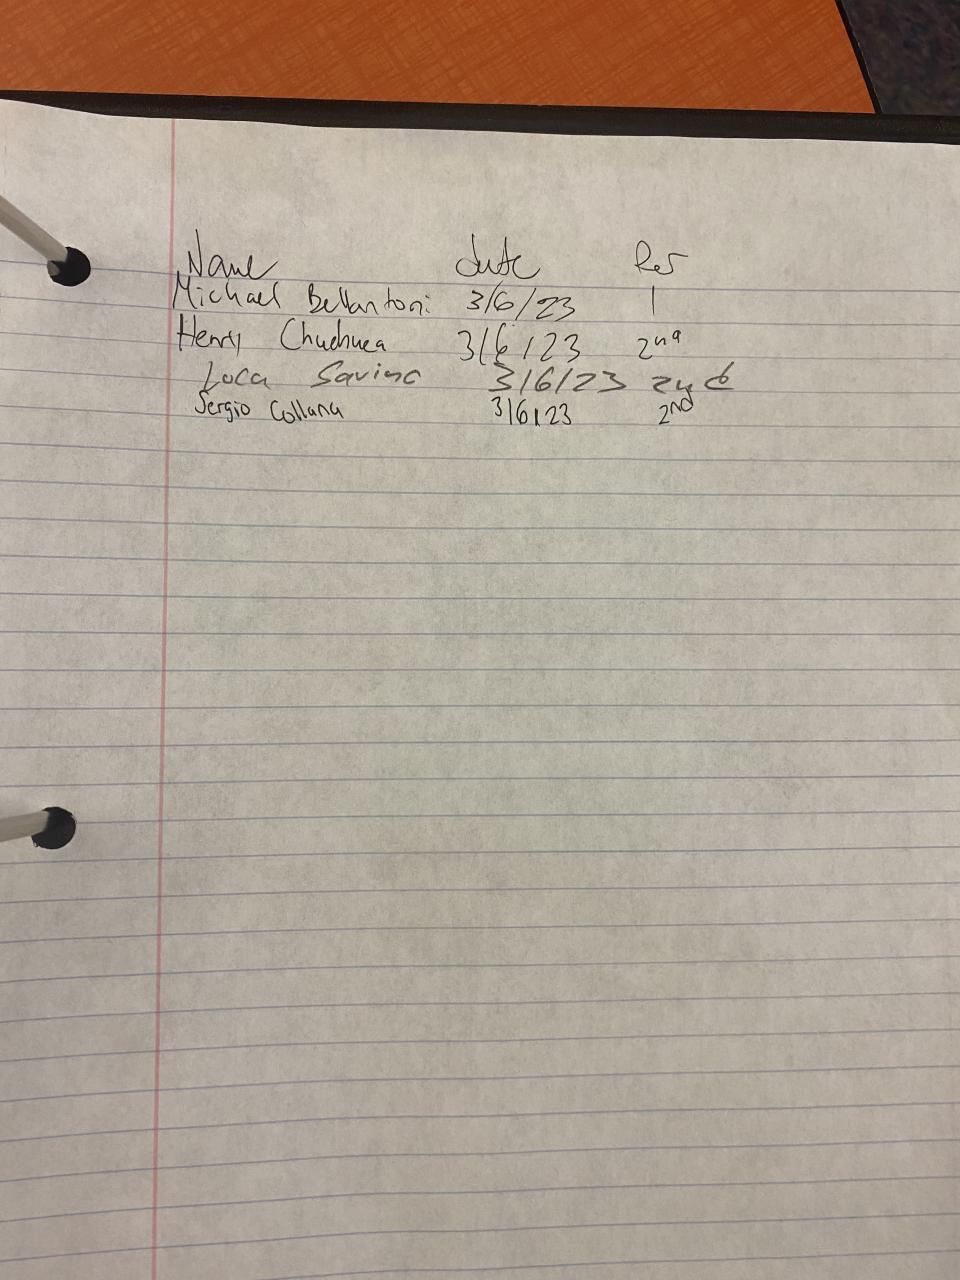 Name date Per
Michael Bellantoni 3/6/23 1
Henry Chuchuca 3/6/23 2nd
Luca Savino 3/6/23 2nd
Sergio Collana 3/6/23 2nd